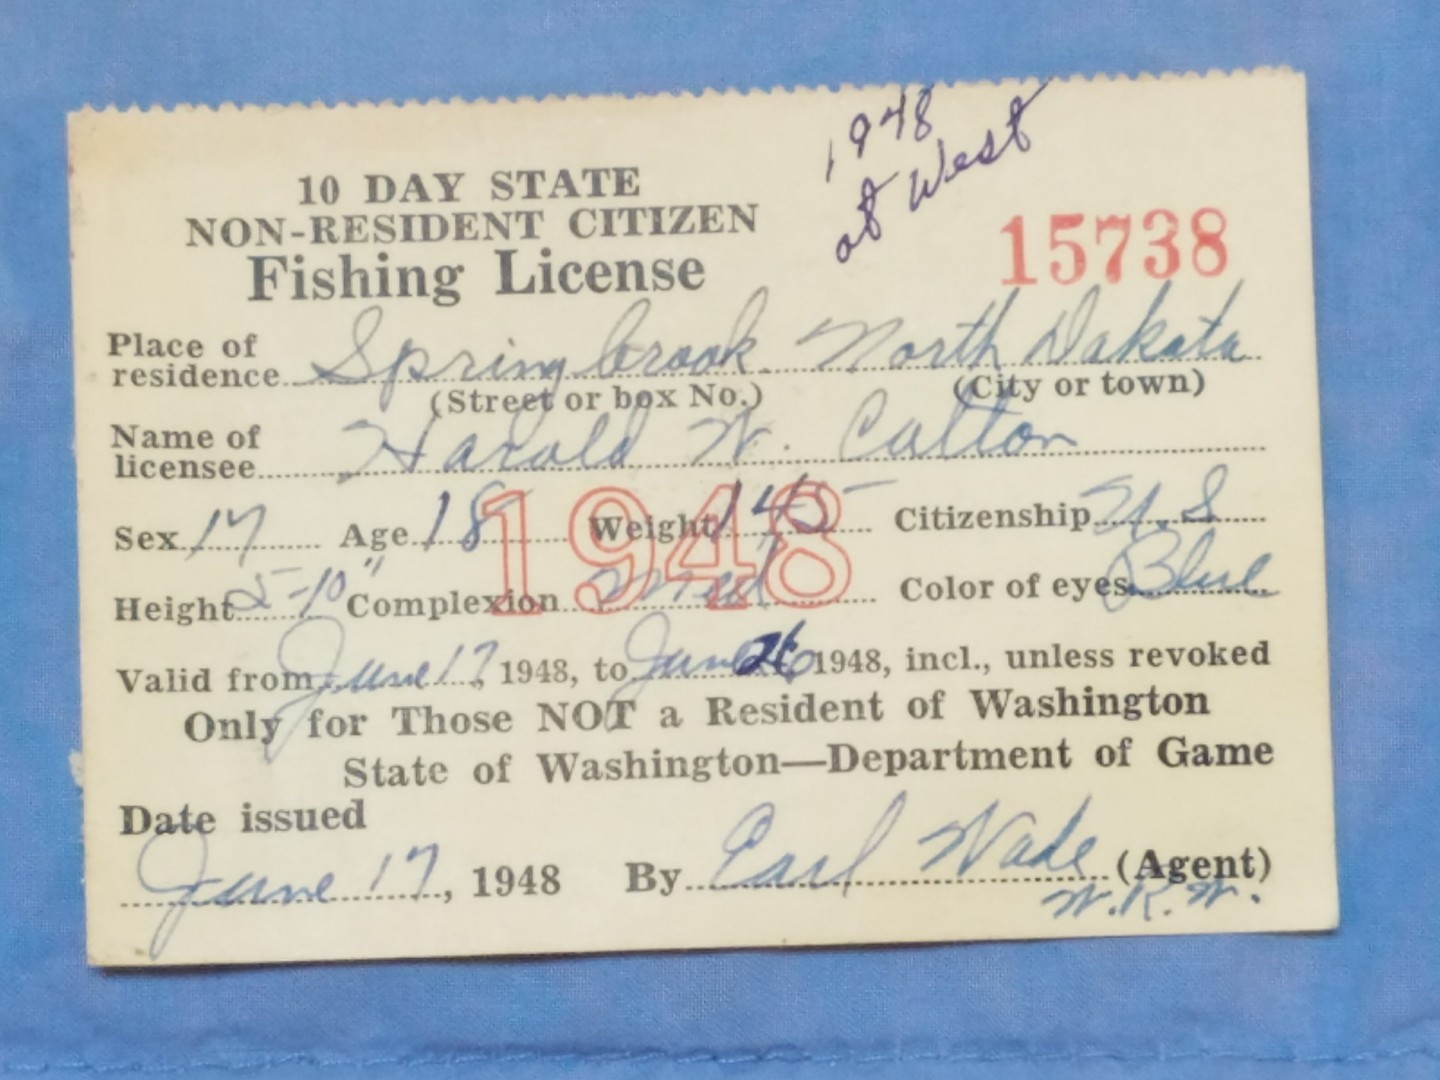 1948
at West
10 DAY STATE
NON-RESIDENT CITIZEN
Fishing License
15738
Place of residence Springbrook North Dakota
(Street or box No.) (City or town)
Name of licensee Harold W. Calton
1948
Sex M Age 18 Weight 145 Citizenship U.S
Height 5-10" Complexion Med Color of eyes Blue
Valid from June 17, 1948, to June 26 1948, incl., unless revoked
Only for Those NOT a Resident of Washington
State of Washington—Department of Game
Date issued
June 17, 1948 By Earl Wade (Agent)
W.R.W.